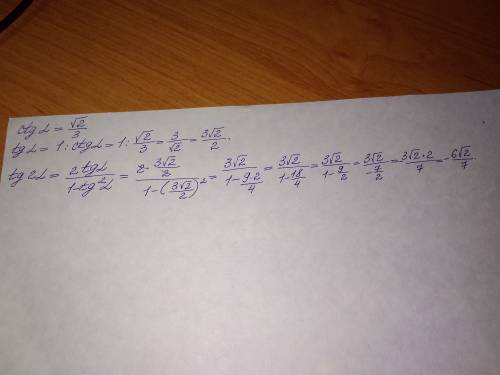 ctg α = √2/3
tg α = 1 : ctg α = 1 : √2/3 = 3/√2 = 3√2/2.
tg 2α = 2 tg α/(1 - tg²α) = (2 · 3√2/2)/(1 - (3√2/2)²) = 3√2/(1 - 9·2/4) = 3√2/(1 - 18/4) = 3√2/(1 - 9/2) = 3√2/(-7/2) = - 3√2·2/7 = - 6√2/7.